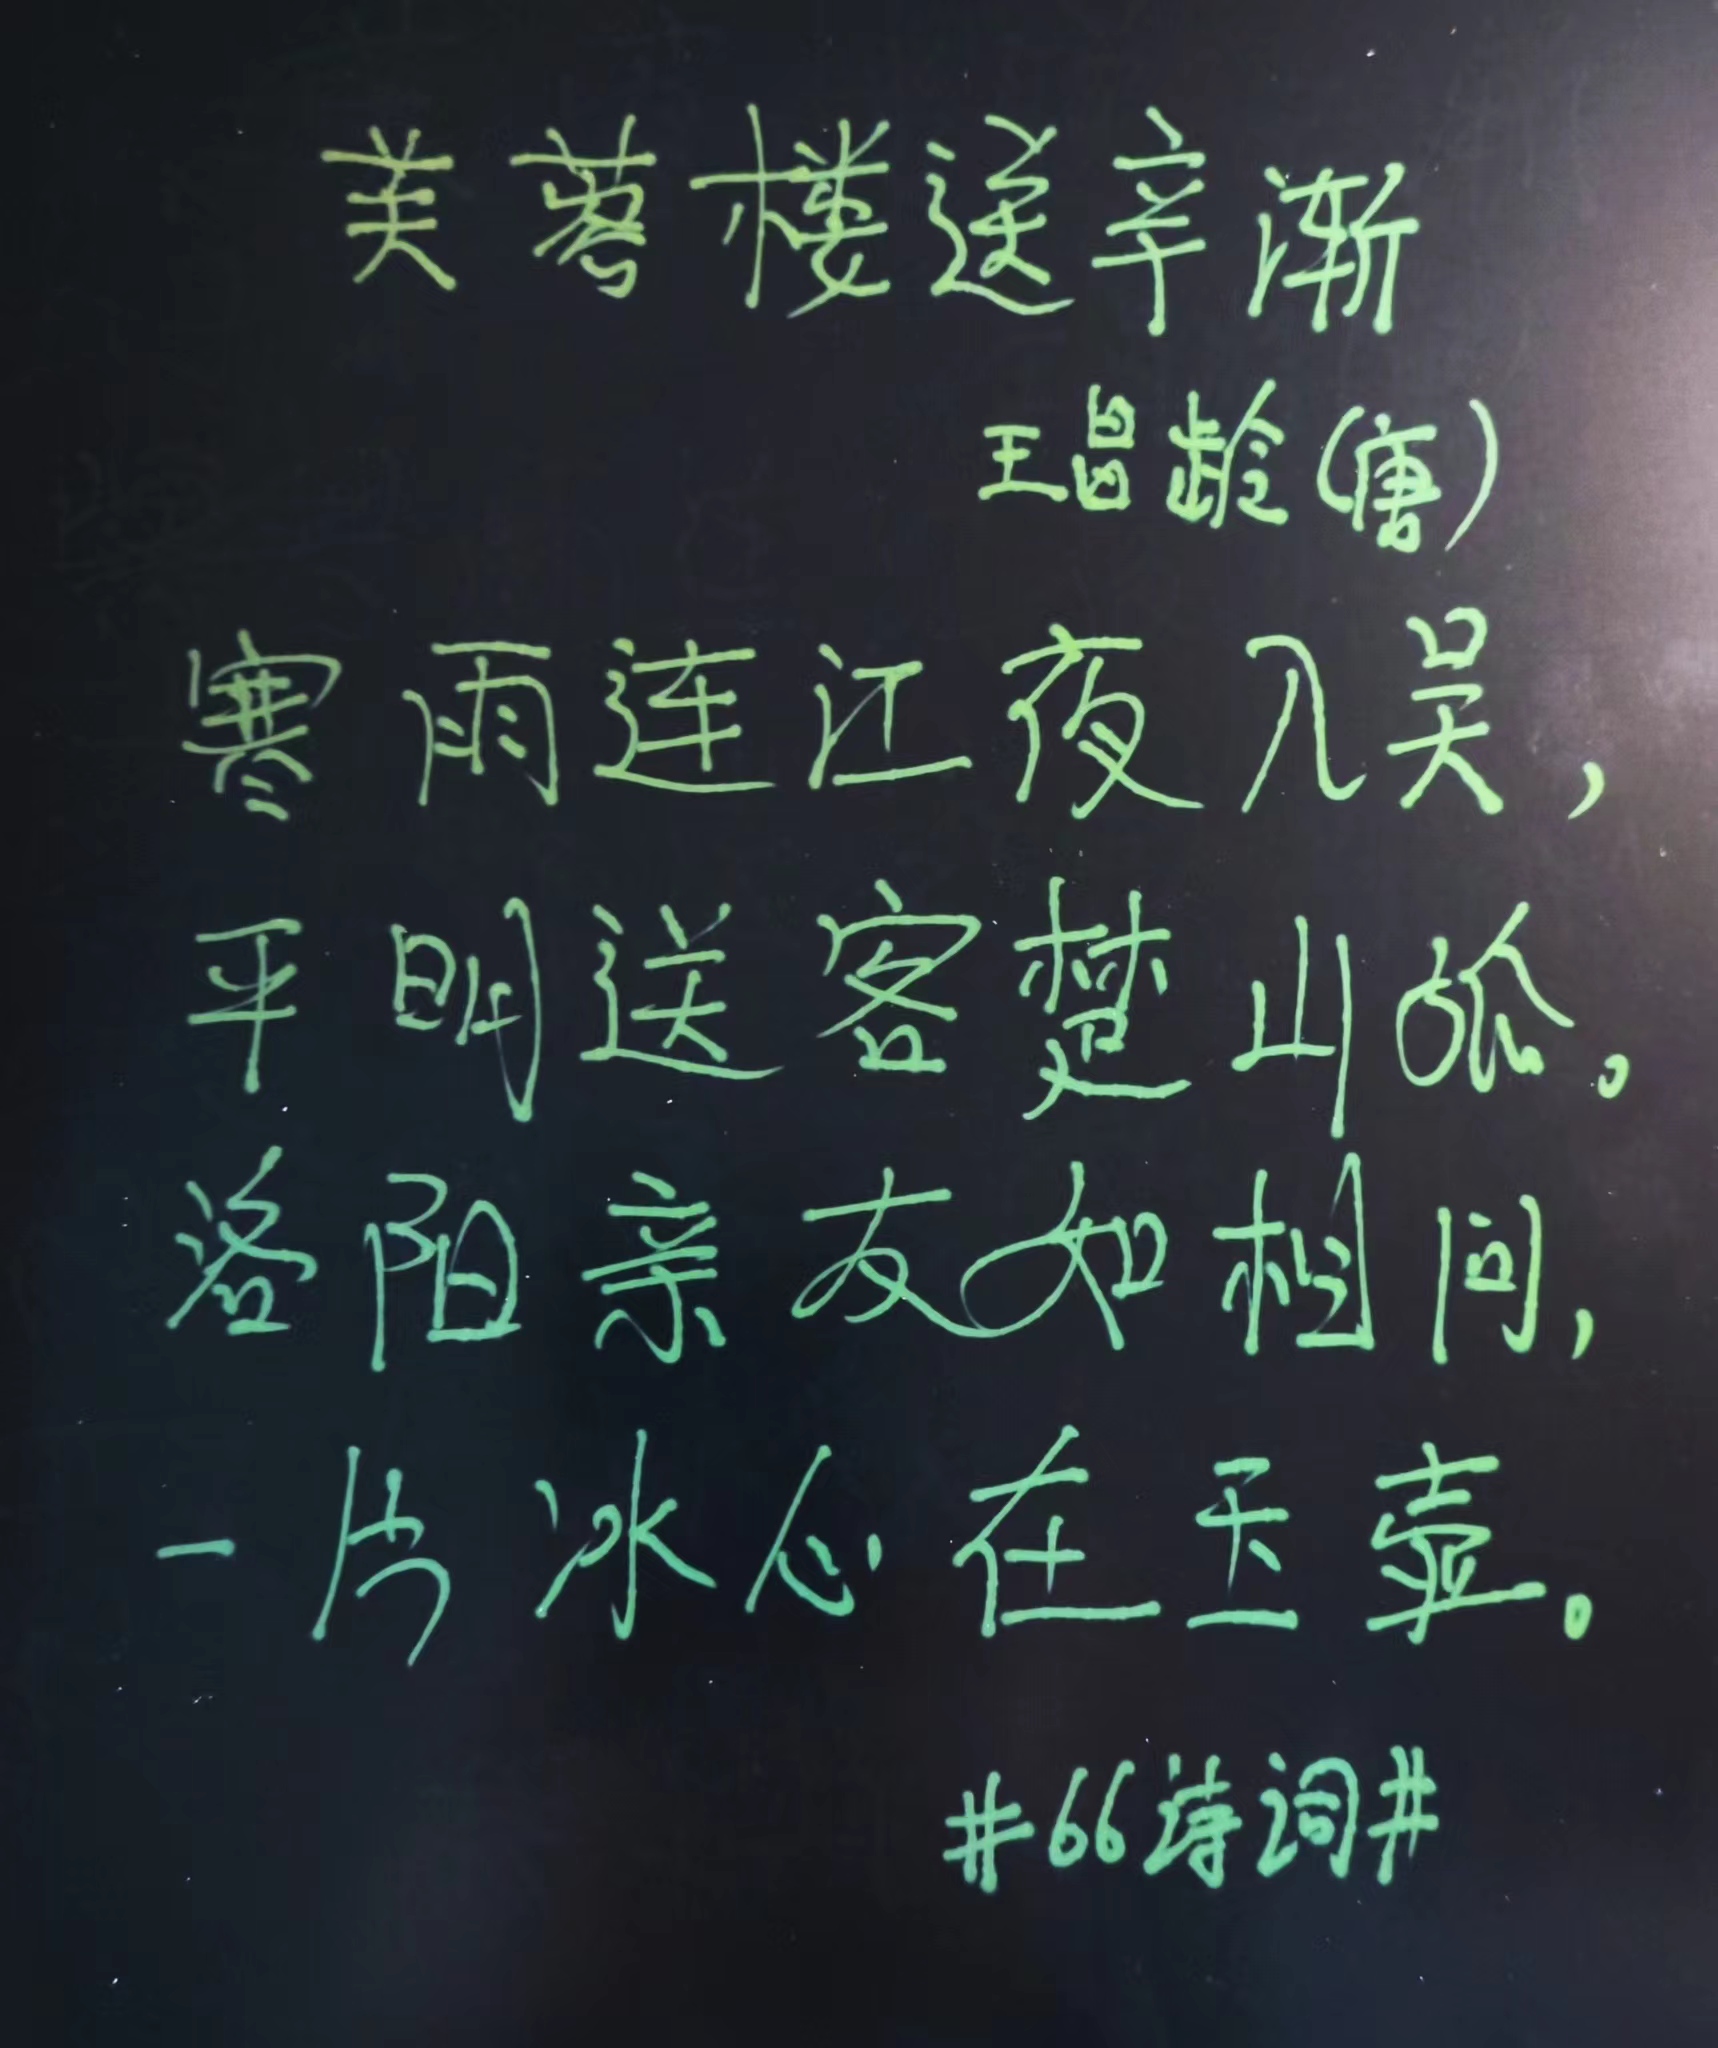 芙蓉楼送辛渐
王昌龄(唐)
寒雨连江夜入吴,
平明送客楚山孤。
洛阳亲友如相问,
一片冰心在玉壶。
#66诗词#